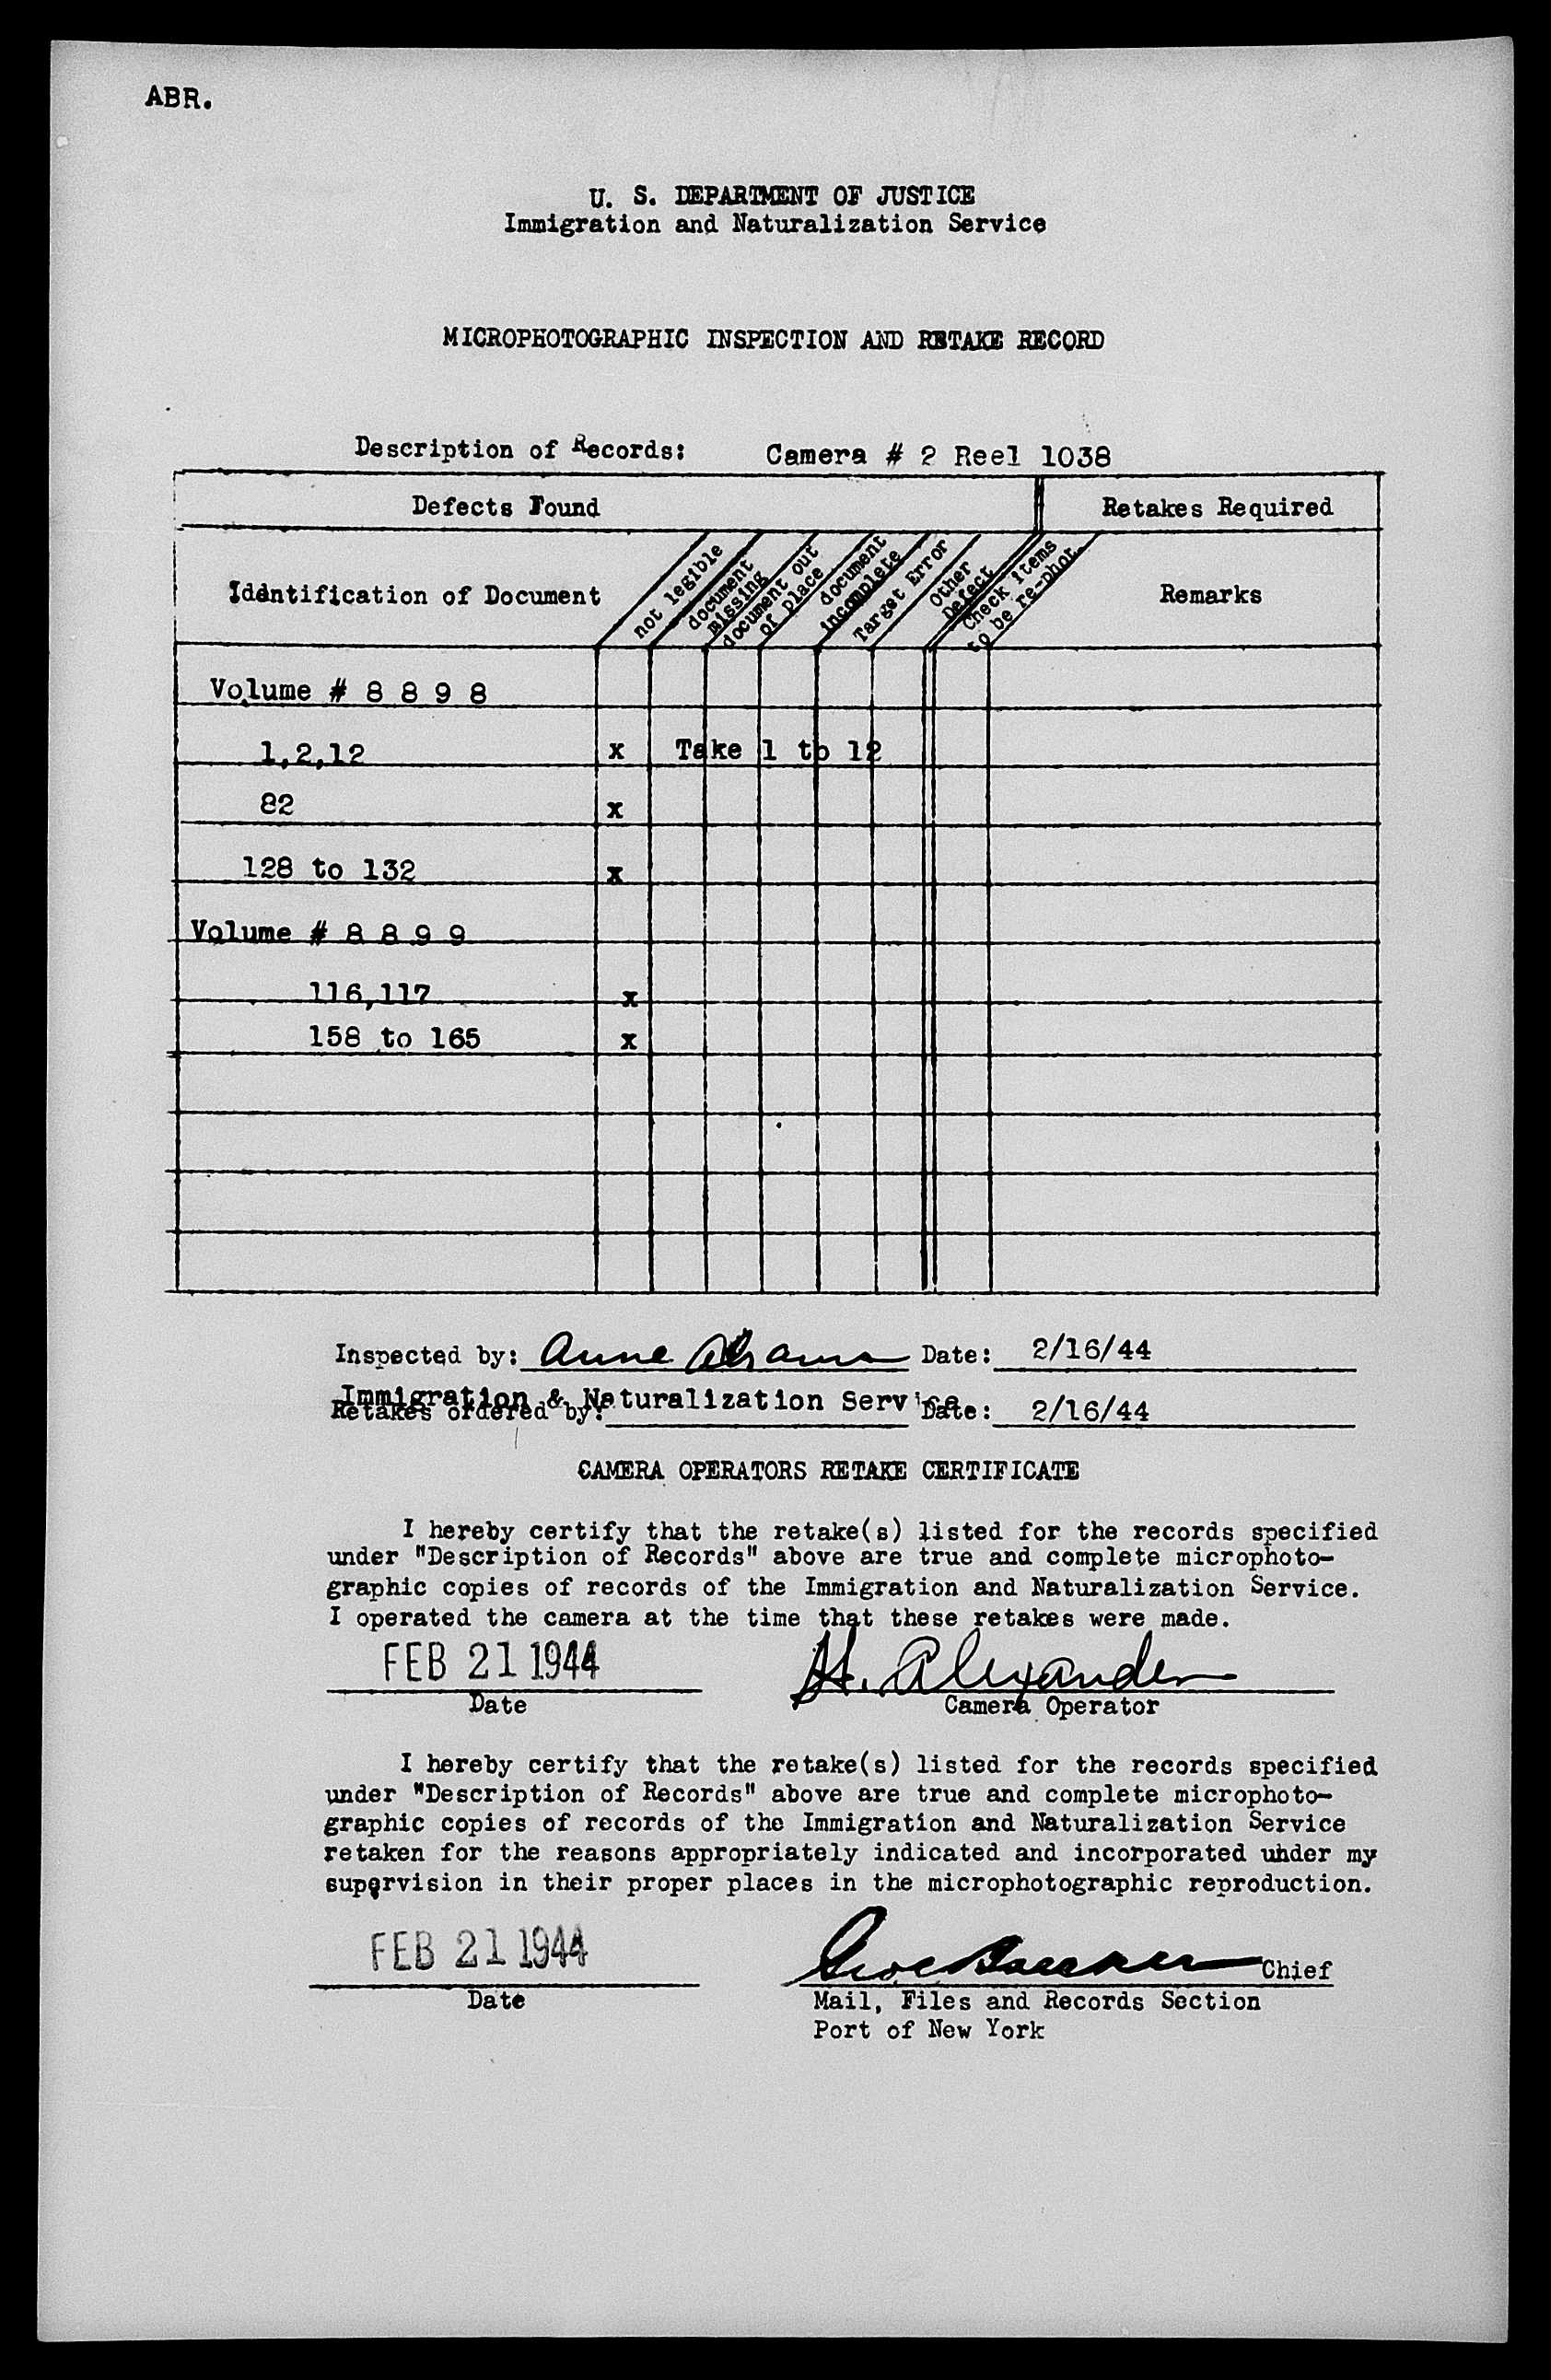 ABR.
U. S. DEPARTMENT OF JUSTICE
Immigration and Naturalization Service
MICROPHOTOGRAPHIC INSPECTION AND RETAKE RECORD
Description of Records: Camera # 2 Reel 1038
Defects Found Retakes Required
Identification of Document
not legible
document missing
document out of place
document incomplete
Target Error
Other Defect
Check items to be re-phot.
Remarks
Volume # 8 8 9 8
1,2,12 x Take 1 to 12
82 x
128 to 132 x
Volume # 8 8 9 9
116,117 x
158 to 165 x
Inspected by: Anne Abrams Date: 2/16/44
Immigration & Naturalization Service.
Retakes ordered by: Date: 2/16/44
CAMERA OPERATORS RETAKE CERTIFICATE
I hereby certify that the retake(s) listed for the records specified
under "Description of Records" above are true and complete microphoto-
graphic copies of records of the Immigration and Naturalization Service.
I operated the camera at the time that these retakes were made.
FEB 21 1944 H. Alexander
Date Camera Operator
I hereby certify that the retake(s) listed for the records specified
under "Description of Records" above are true and complete microphoto-
graphic copies of records of the Immigration and Naturalization Service
retaken for the reasons appropriately indicated and incorporated under my
supervision in their proper places in the microphotographic reproduction.
FEB 21 1944 Chief
Date Mail, Files and Records Section
Port of New York